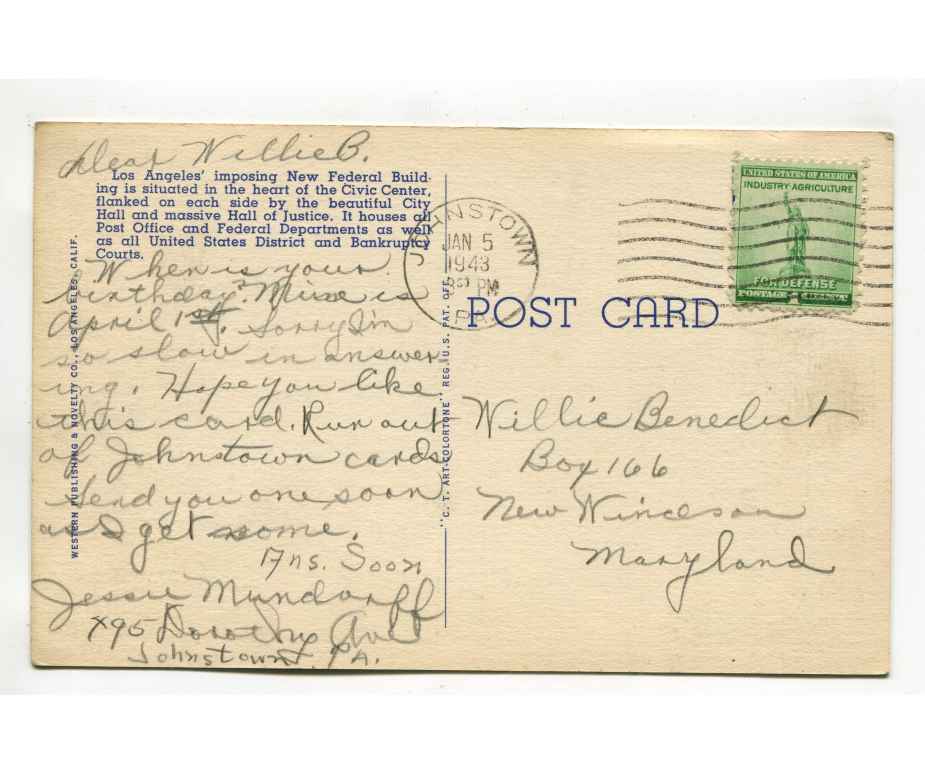 Dear Willie B.
Los Angeles' imposing New Federal Build-
ing is situated in the heart of the Civic Center,
flanked on each side by the beautiful City
Hall and massive Hall of Justice. It houses all
Post Office and Federal Departments as well
as all United States District and Bankruptcy
Courts.
When is your
birthday? Mine is
April 1st. Sorry I'm
so slow in answer
ing. Hope you like
this card. Run out
of Johnstown cards
Send you one soon
as I get some.
Ans. Soon
Jessie Mundorff
795 Dorothy Ave
Johnstown, PA.
WESTERN PUBLISHING & NOVELTY CO., LOS ANGELES, CALIF.
"C. T. ART-COLORTONE" REG. U.S. PAT. OFF.
JOHNSTOWN
JAN 5
1943
PM
PA.
UNITED STATES OF AMERICA
INDUSTRY AGRICULTURE
FOR DEFENSE
POSTAGE
POST CARD
Willie Benedict
Box 166
New Wincson
Maryland